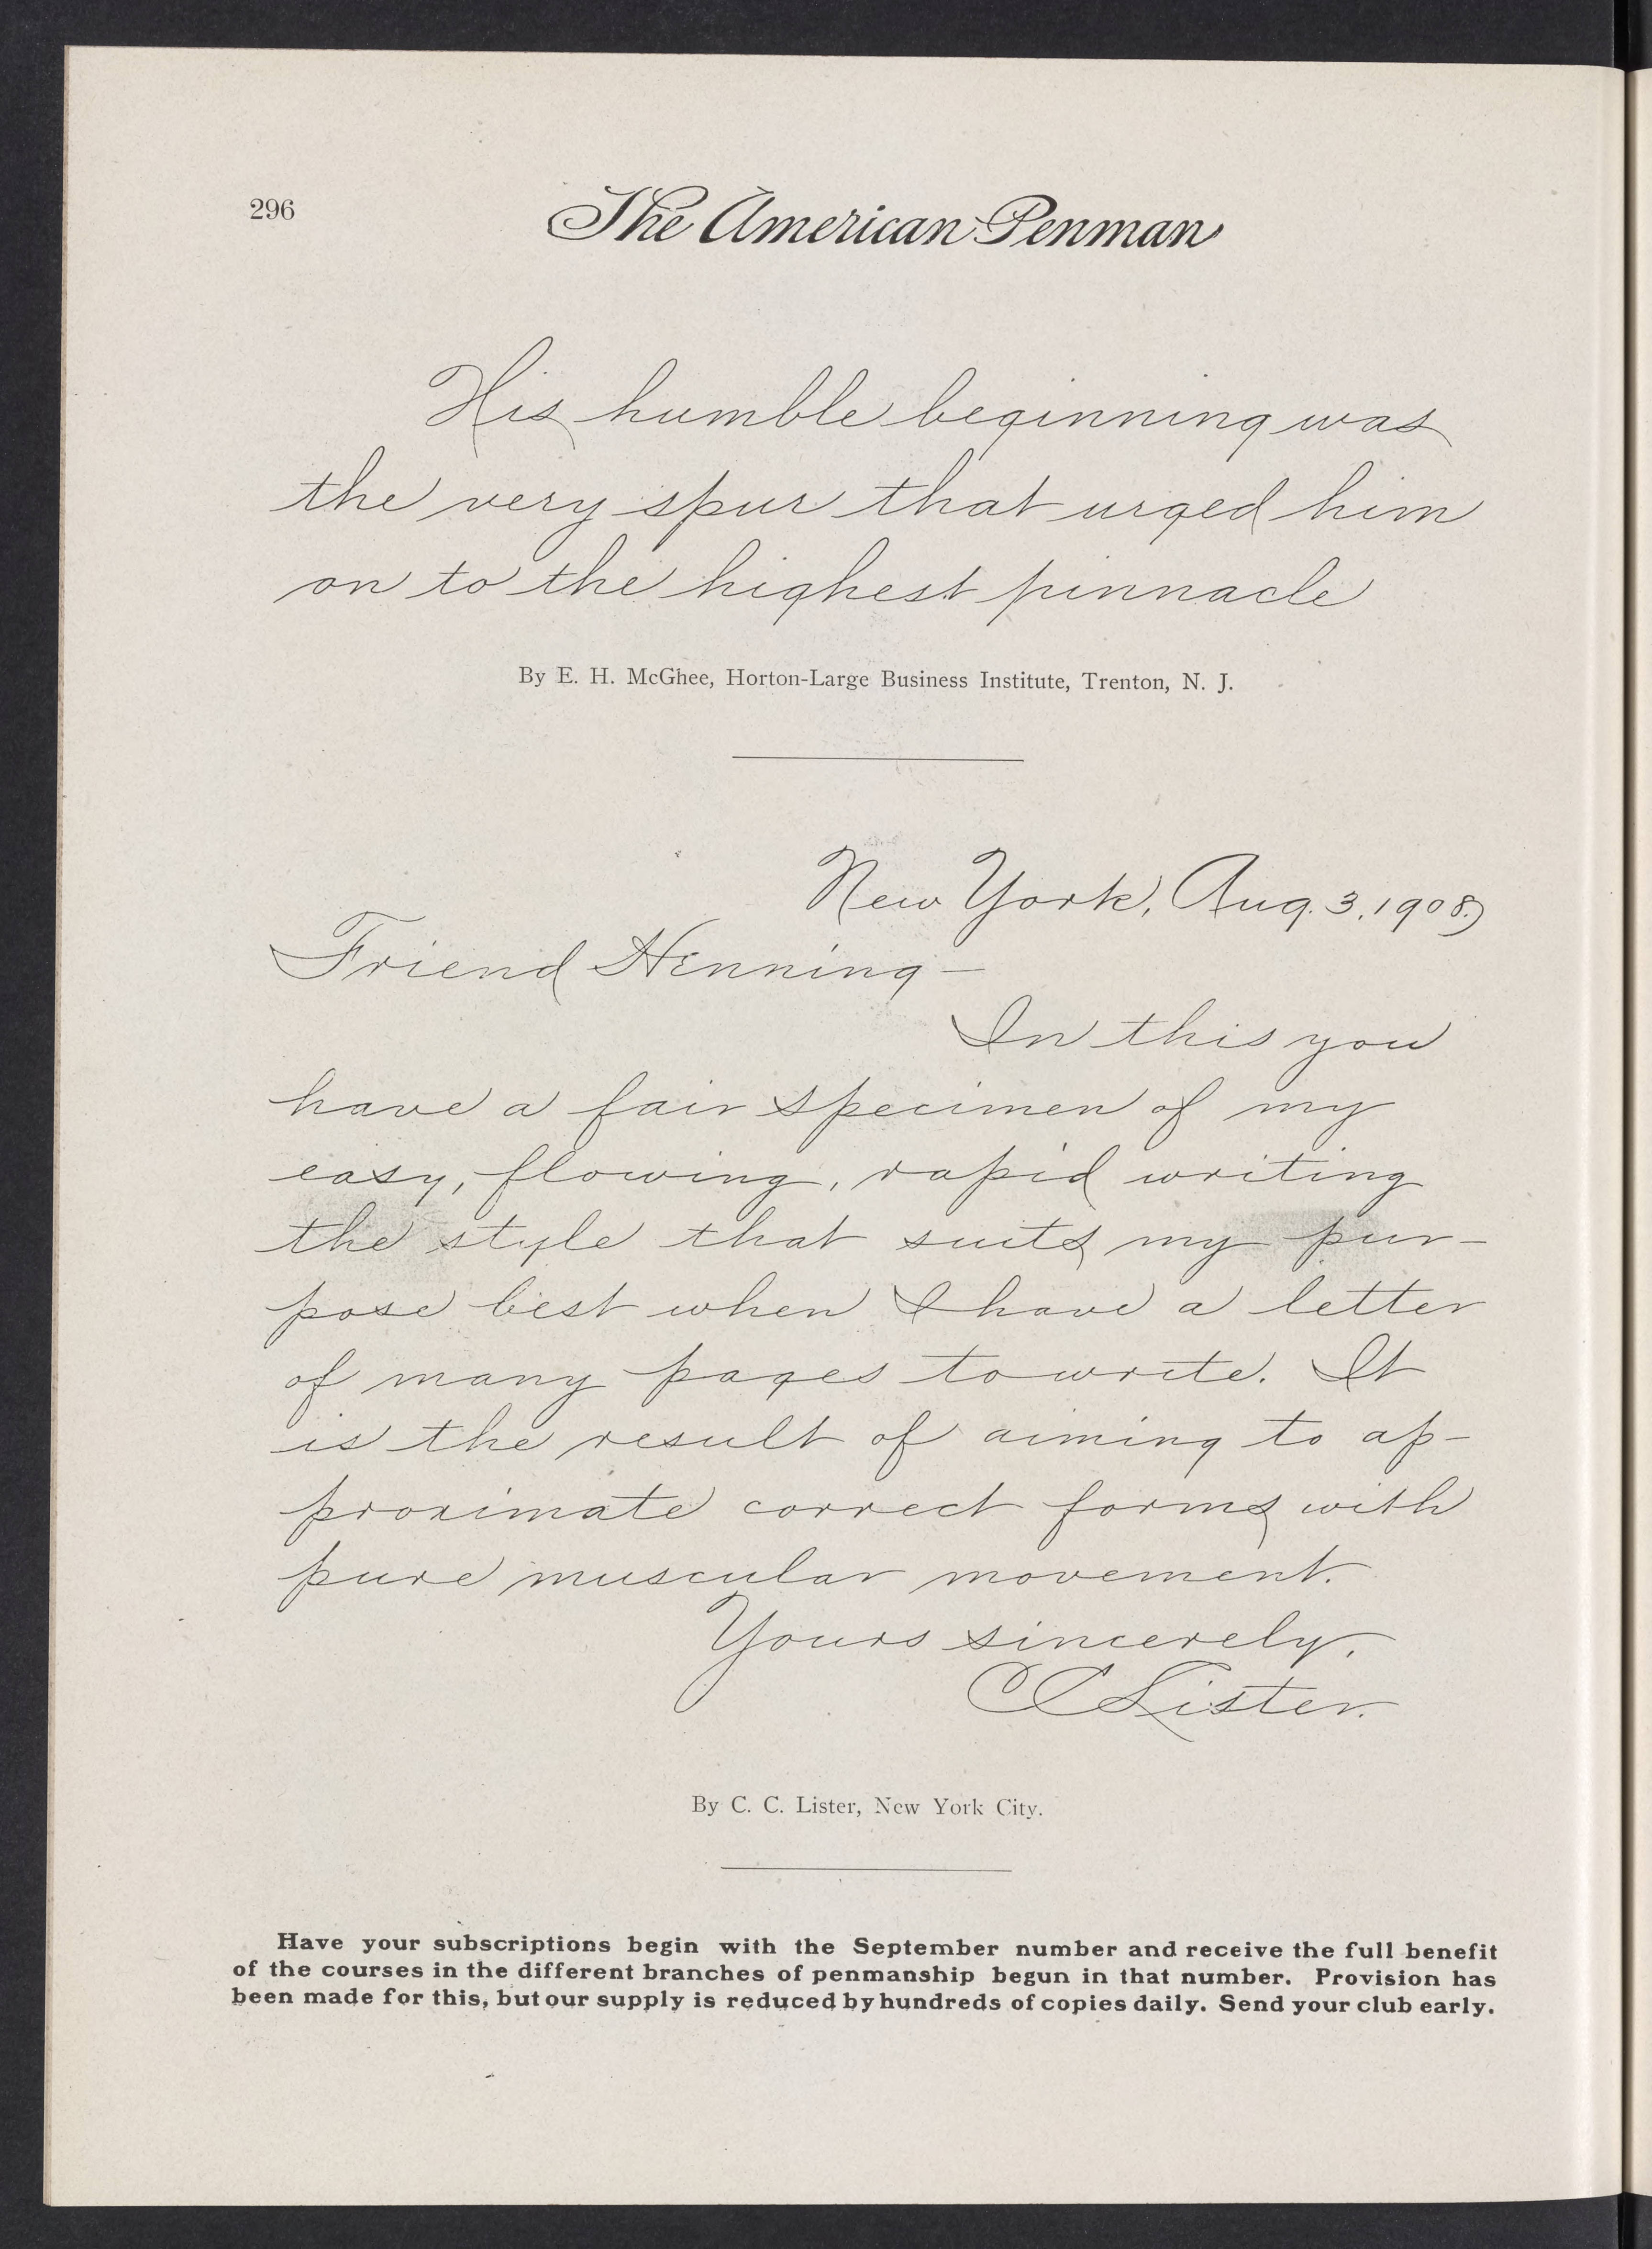 296
The American Penman
His humble beginning was
the very spur that urged him
on to the highest pinnacle
By E. H. McGhee, Horton-Large Business Institute, Trenton, N. J.
New York, Aug. 3, 1908.
Friend Henning —
In this you
have a fair specimen of my
easy, flowing, rapid writing
the style that suits my pur-
pose best when I have a letter
of many pages to write. It
is the result of aiming to ap-
proximate correct forms with
pure muscular movement.
Yours sincerely,
C C Lister.
By C. C. Lister, New York City.
Have your subscriptions begin with the September number and receive the full benefit
of the courses in the different branches of penmanship begun in that number. Provision has
been made for this, but our supply is reduced by hundreds of copies daily. Send your club early.